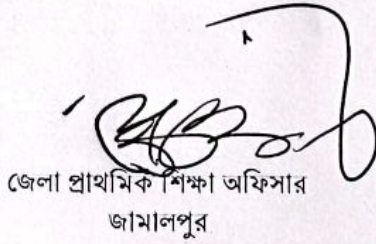 জেলা প্রাথমিক শিক্ষা অফিসার
জামালপুর